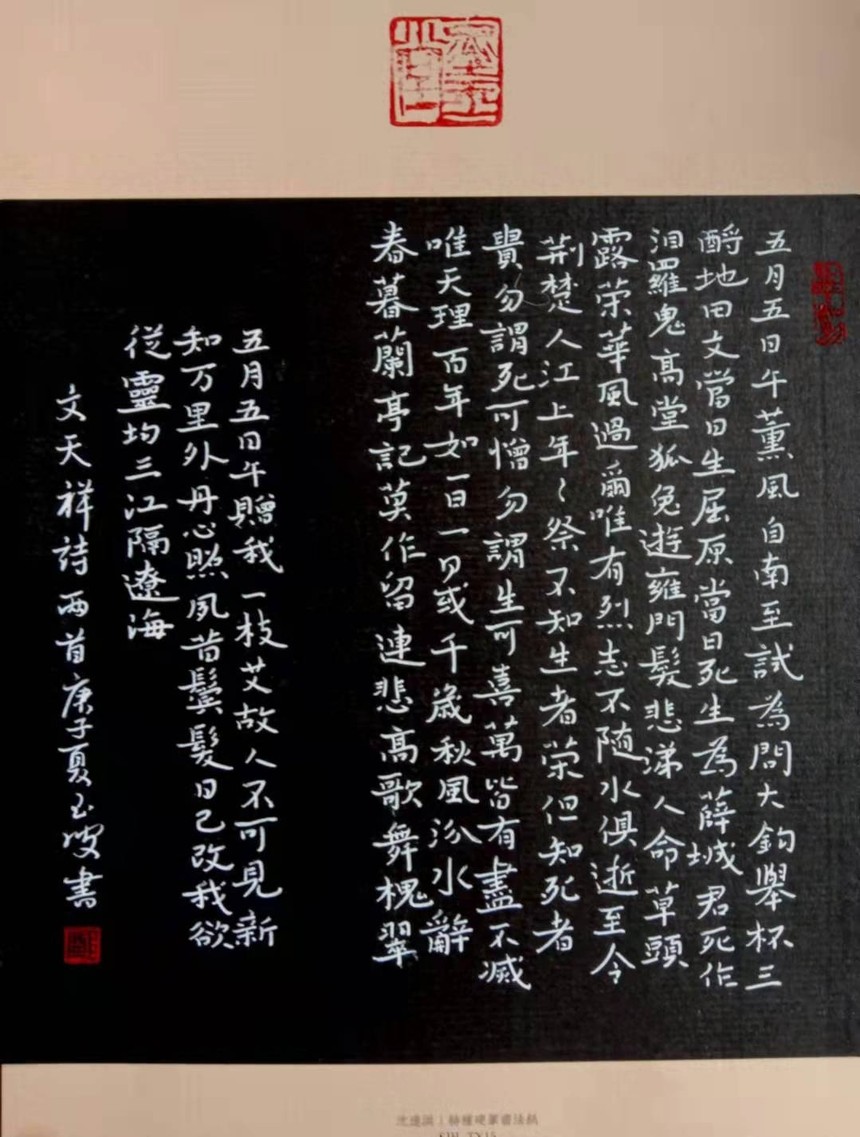 五月五日午薰風自南至試為問大鈞舉杯三
酹地田文當日生屈原當日死生為薛城君死作
汨羅鬼高堂狐兔遊雍門髮悲涕人命草頭
露荣華風過爾唯有烈志不隨水俱逝至今
荆楚人江上年〻祭不知生者荣但知死者
貴勿謂死可憎勿謂生可喜萬皆有盡不滅
唯天理百年如一日一日或千歲秋風汾水辭
春暮蘭亭記莫作留連悲高歌舞槐翠
五月五日午贈我一枝艾故人不可見新
知万里外丹心照夙昔鬓髮日已改我欲
從靈均三江隔遼海
文天祥詩兩首庚子夏玉叟書